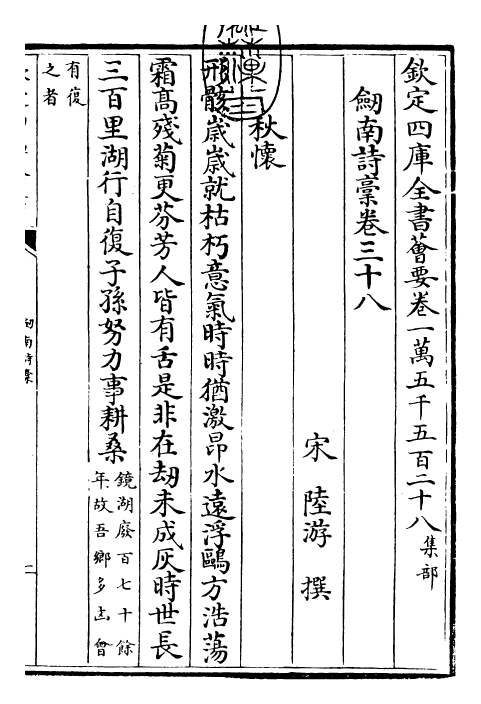 欽定四庫全書薈要卷一萬五千五百二十八集部
劒南詩藁卷三十八
宋陸游撰
秋懷
形骸歲歲就枯朽意氣時時猶激昂水遠浮鷗方浩蕩
霜髙殘菊更芬芳人皆有舌是非在刼未成灰時世長
三百里湖行自復子孫努力事耕桑鏡湖廢百七十餘
年故吾鄉多旱㑹
有復
之者